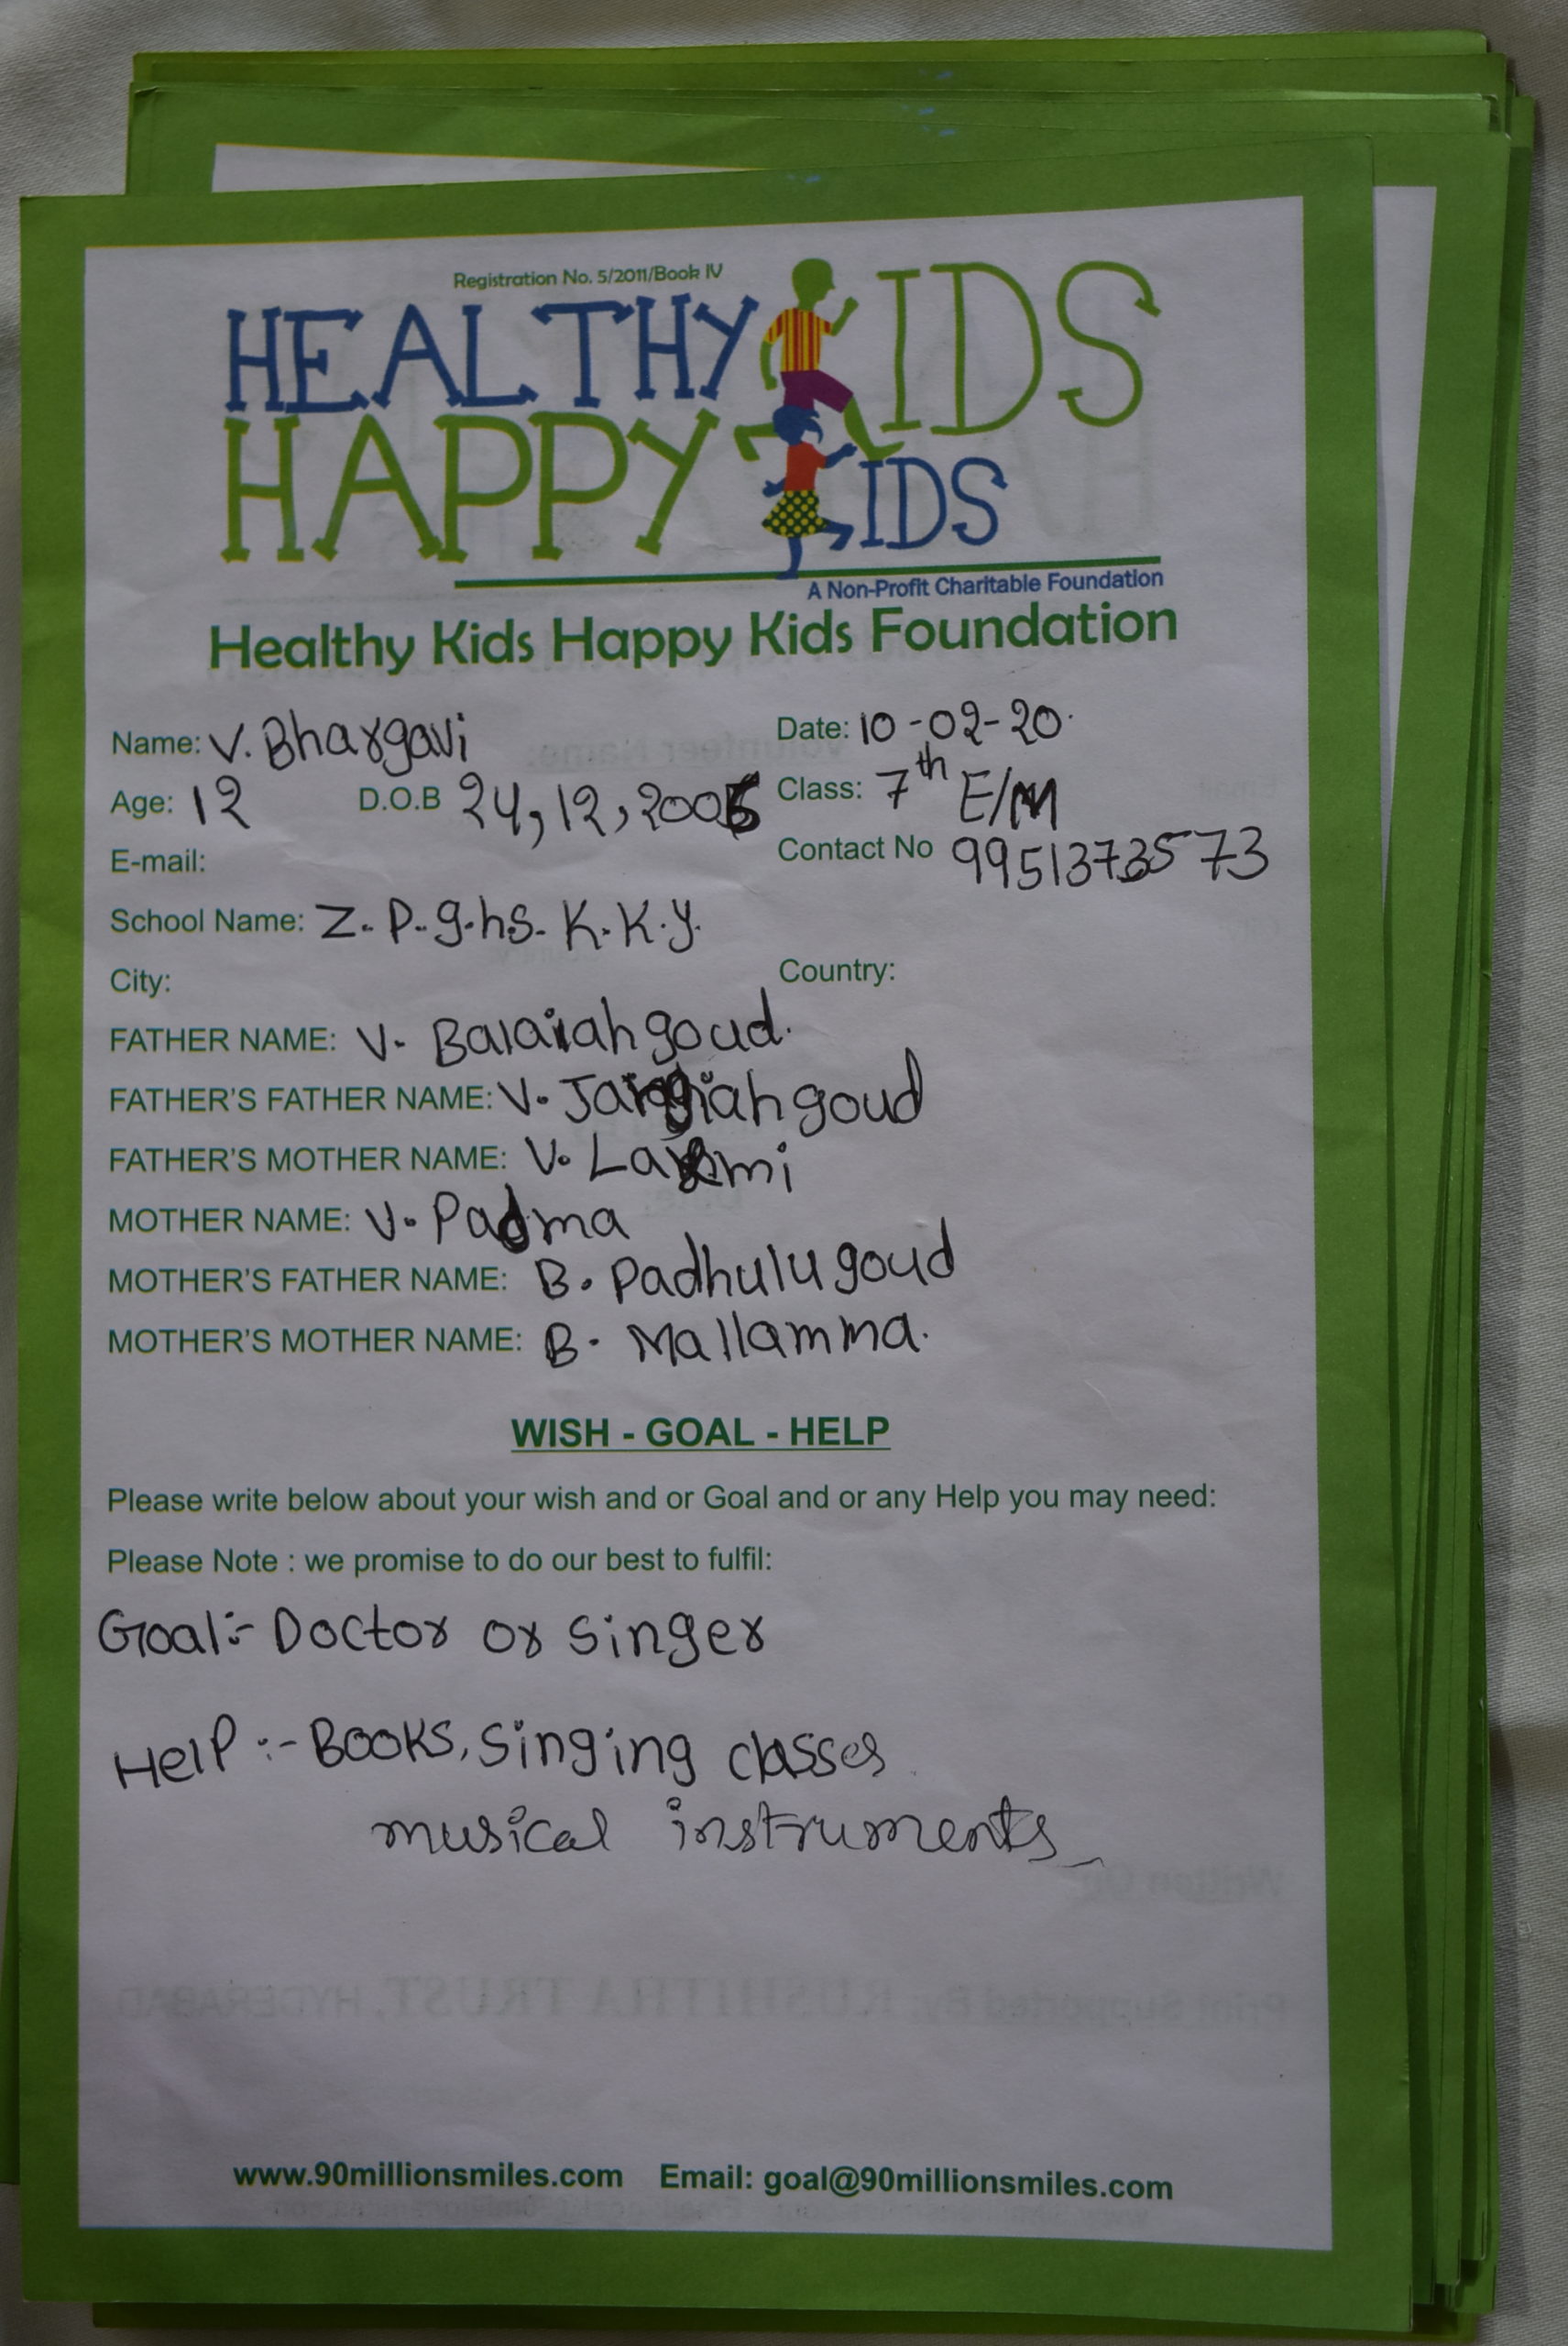 Registration No. 5/2011/Book IV
HEALTHY KIDS
HAPPY KIDS
A Non-Profit Charitable Foundation
Healthy Kids Happy Kids Foundation
Name: V. Bhargavi Date: 10-02-20.
Age: 12 D.O.B 24,12, Class: 7th E/M
E-mail: Contact No
School Name: Z. P. g.hs. K.K.y.
City: Country:
FATHER NAME: V. Balaiah goud.
FATHER'S FATHER NAME: V. Jangiah goud
FATHER'S MOTHER NAME: V. Laxmi
MOTHER NAME: V. Padma
MOTHER'S FATHER NAME: B. Padhulu goud
MOTHER'S MOTHER NAME: B. Mallamma.
WISH - GOAL - HELP
Please write below about your wish and or Goal and or any Help you may need:
Please Note : we promise to do our best to fulfil:
Goal:- Doctor or singer
Help :- Books, singing classes
musical instruments
www.90millionsmiles.com Email: goal@90millionsmiles.com